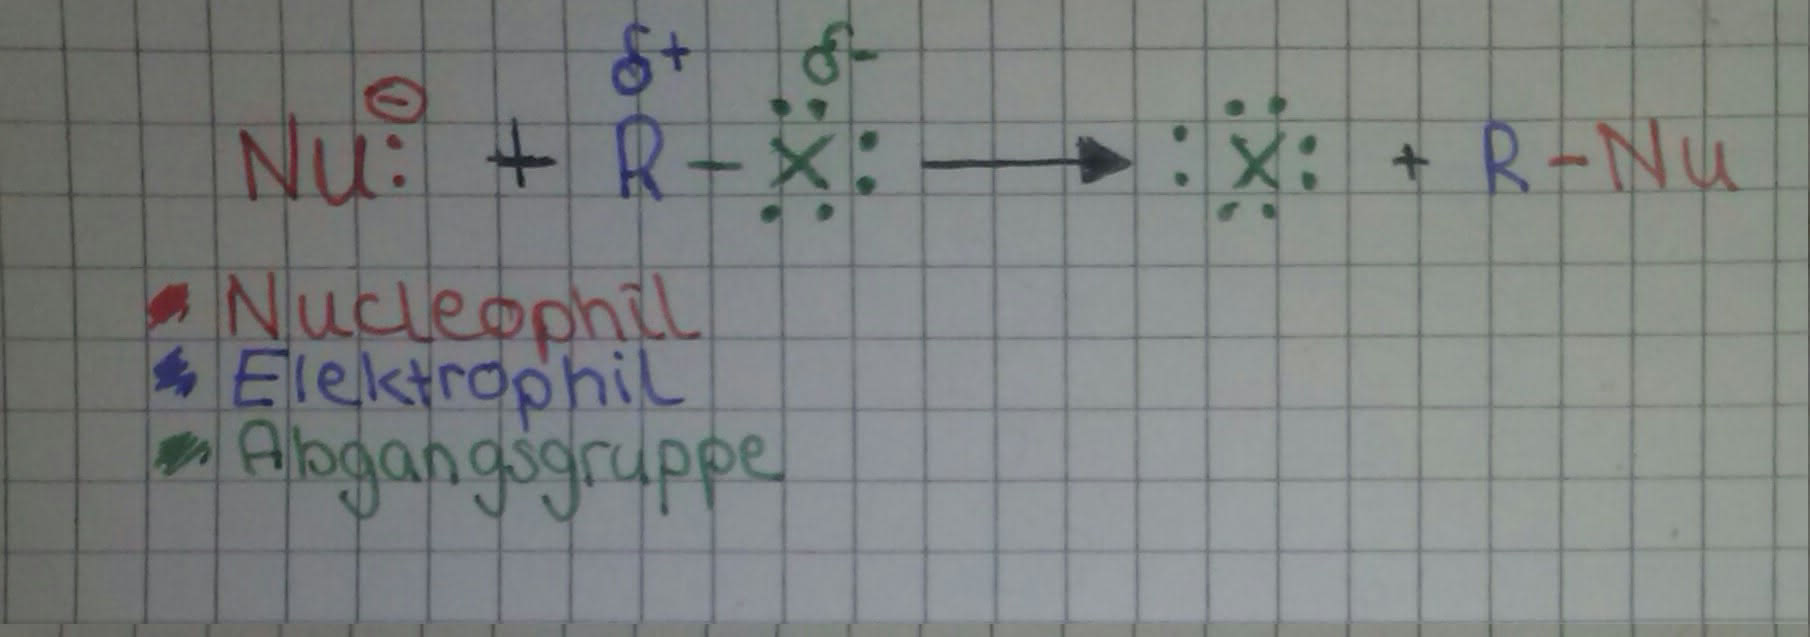 δ+ δ-
Nu:⊖ + R-X: → :X: + R-Nu
Nucleophil
Elektrophil
Abgangsgruppe